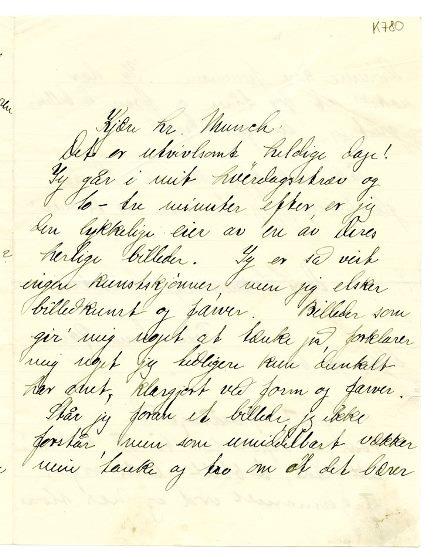 K780
Kjære hr. Munch.
Det er utvivlsomt heldige dage!
Jeg går i mit hverdagsstræv og
to-tre minuter efter er jeg
den lykkelige eier av en av Deres
herlige billeder. Jeg er så visst
ingen kunstskjønner men jeg elsker
billedkunst og farver. Billeder som
gir mig noget at tænke på, forklarer
mig noget jeg tidligere kun dunkelt
har anet, klargjort ved form og farver.
Står jeg foran et billede jeg ikke
forstår men som umiddelbart vækker
min tanke og tro om at det bærer